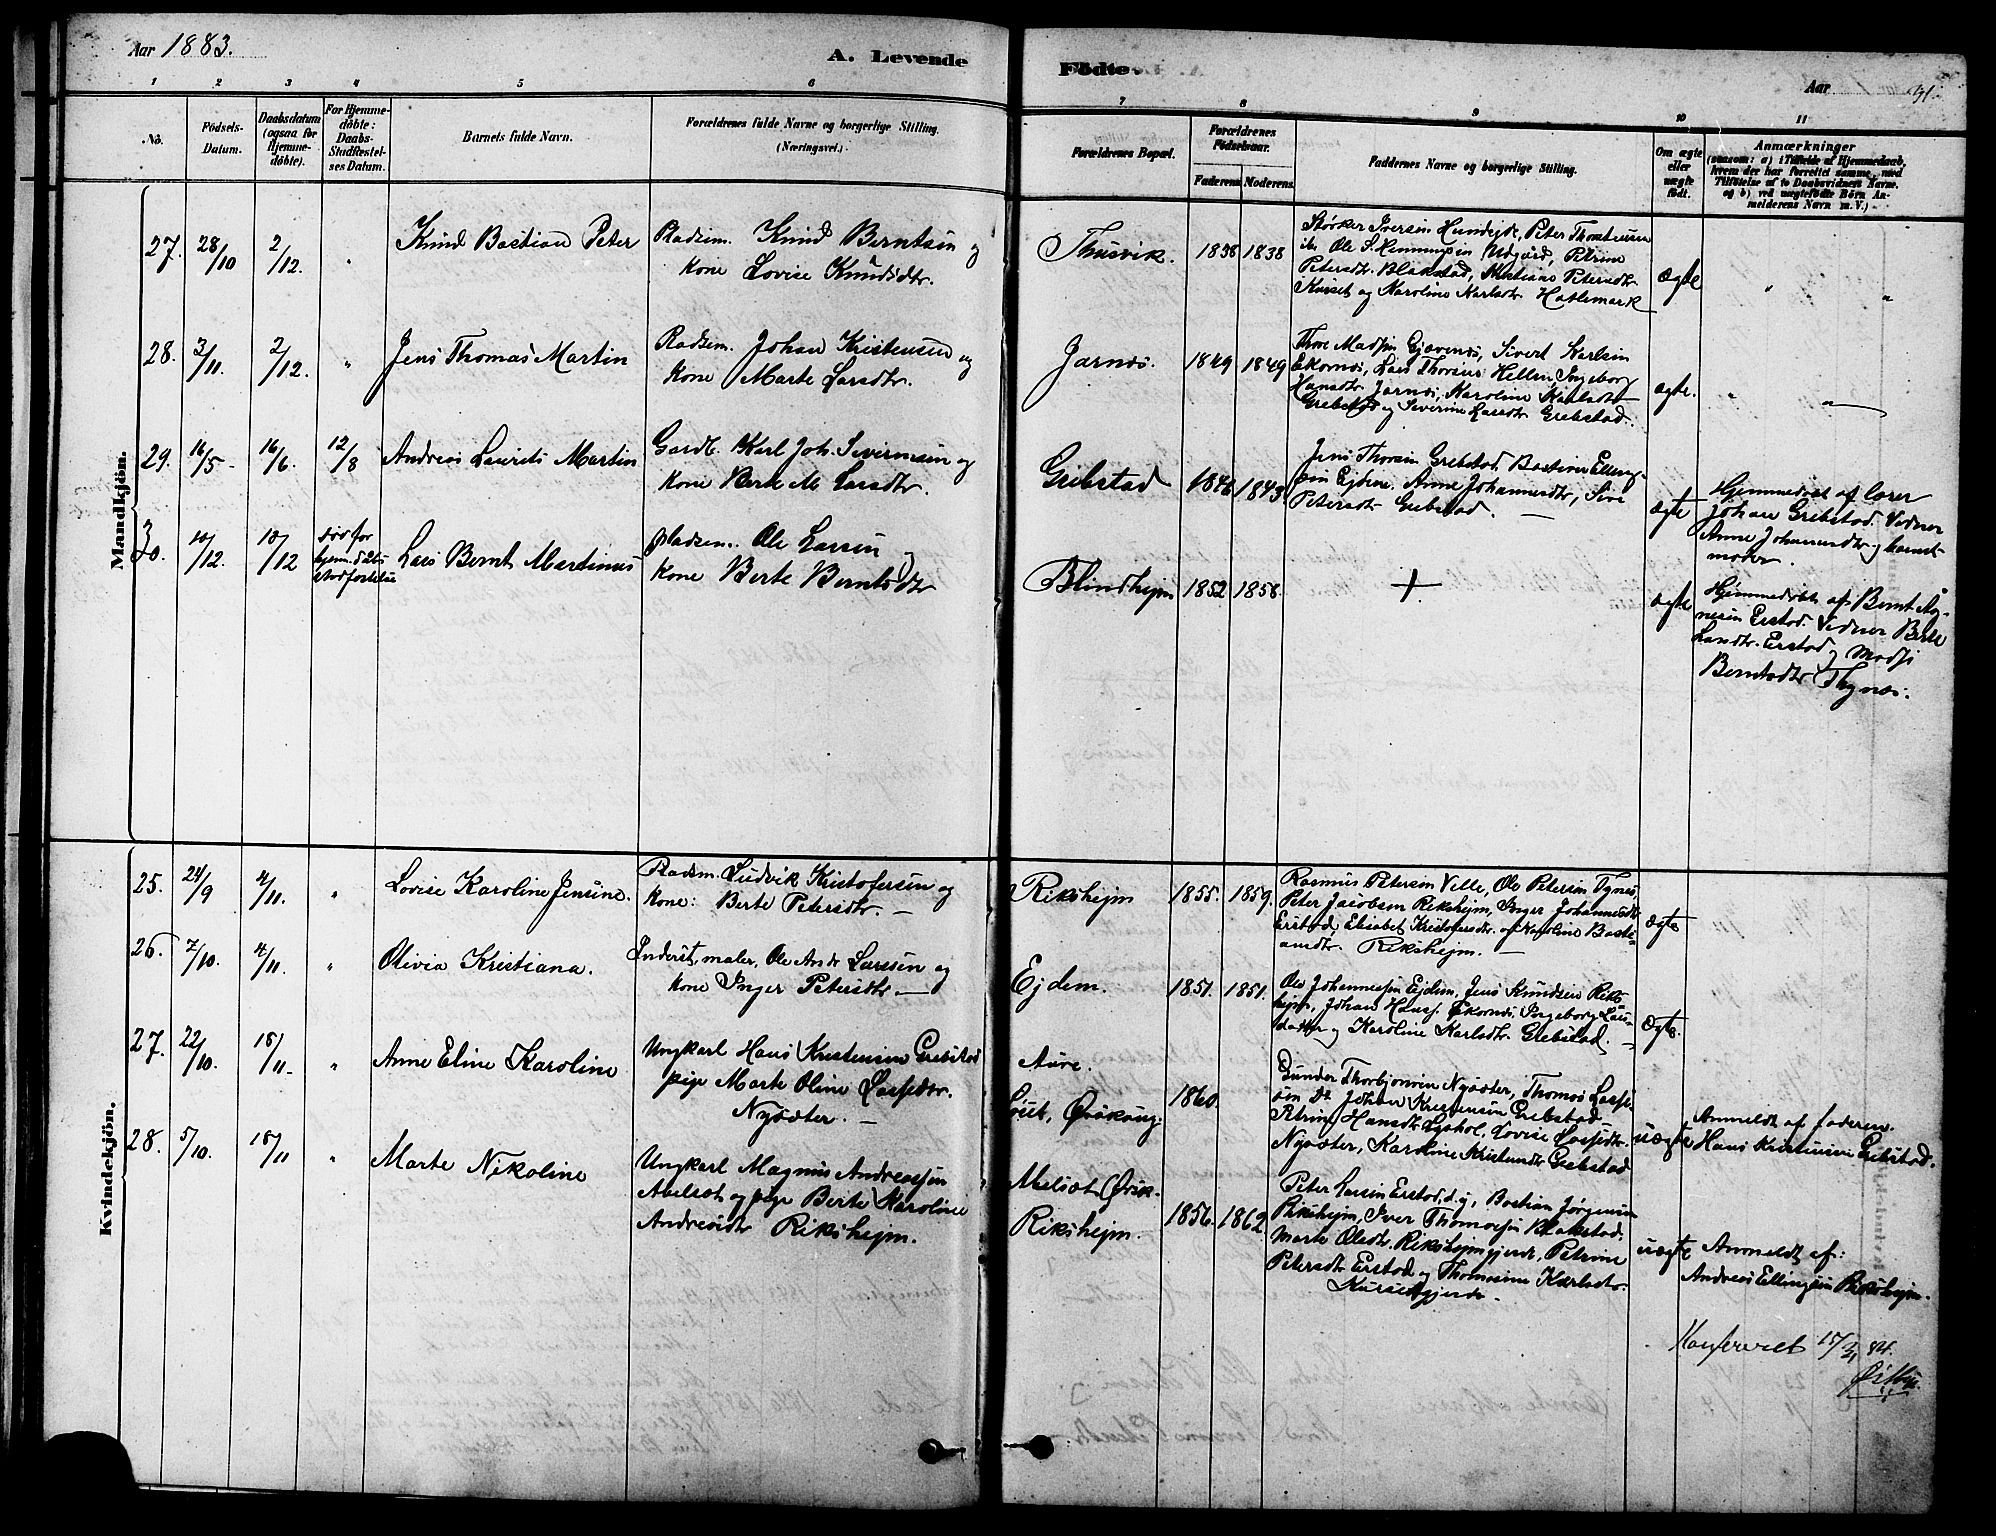 Aar 1883.
A. Levende
Födte.
Aar
31.
1 2 3 4 5 6 7 8 9 10 11
No.
Födsels-
Datum.
Daabsdatum
(ogsaa for
Hjemme-
döbte).
For Hjemme-
döbte:
Daabs-
Stadfæstel-
ses Datum.
Barnets fulde Navn.
Forældrenes fulde Navne og borgerlige Stilling.
(Næringsvei.)
Forældrenes Bopæl.
Forældrenes
Födselsaar.
Faderens. Moderens.
Faddernes Navne og borgerlige Stilling.
Om ægte
eller
uægte
födt.
Anmærkninger
(saasom: a) i Tilfælde af Hjemmedaab,
hvem der har forrettet samme, med
Tilföielse af to Daabsvidners Navne.
og b) ved uægtefödte Börn An-
melderens Navn m. V.)
Mandkjön.
27. 28/10 2/12. "
Knud Bastian Peter
Pladsm. Knud Berntsen og
Kone Lovise Knudsdtr.
Thusvik. 1838 1838
Størker Iversen Hundeide, Peter Thorsteinsen
Ole S. Hemmingsen Udgård, Petrine
Petersdtr. Blakstad, Kristiane Petersdtr.
Kurset og Karoline Karlsdtr. Hatlemark
Ægte " "
28. 3/11. 2/12. "
Jens Thomas Martin
Pladsm. Johan Kristensen og
Kone Marte Larsdtr.
Jarnes. 1849 1849
Thore Madssen Gjævenes, Sivert Karlsen
Ekornes, Lars Thorsen Hellen, Ingeborg
Hansdtr. Jarnes, Karoline Karlsdtr
Grebstad og Severine Larsdtr Grebstad.
ægte. " "
29. 16/5 16/6. 12/8
Andreas Laurits Martin
Gardb. Karl Joh. Severinsen og
Kone Berte M. Larsdtr.
Grebstad 1846 1843
Jens Thorsen Grebstad, Bastian Elling-
sen Ejdem. Anne Johannesdtr, Sive
Petersdtr Grebstad. —
ægte
Hjemmedøbt af lærer
Johan Grebstad. Vidner
Anne Johannesdtr og barnets
moder.
30. 10/12. 10/12
død før
hjem.dåbs
stadfestelse
Lars Bernt Martinus
Pladsm. Ole Larsen og
Kone Berte Berntsdtr
Blindhejm 1852 1858.
+
ægte
Hjemmedøbt af Bernt Ag-
nesen Erstad. Vidner Berte
Larsdtr. Erstad og Madsi
Berntsdtr Tygnes.
Kvindekjön.
25. 24/9 4/11. "
Lovise Karoline Jensine.
Pladsm. Ludvik Kristofersen og
Kone: Berte Petersdtr. —
Rikshejm 1855. 1859.
Rasmus Petersen Velle, Ole Petersen Tygnes,
Peter Jacobsen Rikshejm, Inger Johannesdtr
Erstad, Elisabet Kristofersdtr. og Karoline Basti-
ansdtr. Rikshejm. —
ægte
26. 7/10. 4/11. "
Olivia Kristiana.
Inderst, maler, Ole Andr. Larsen og
Kone Inger Petersdtr. —
Ejdem. 1851. 1851.
Ole Johannessen Ejdem, Jens Knudsen Riks-
hejm, Johan Hansen Ekornes, Ingeborg Lars-
datter og Karoline Karlsdtr. Grebstad. —
Ægte.
27. 22/10. 18/11. "
Anne Eline Karoline
Ungkarl Hans Kristensen Grebstad
pige Marte Oline Lassedtr.
Nysæter. —
Aure.
Søet, Ørskoug. 1860.
Gunder Thorbjørnsen Nysæter, Thomas Lasse-
sen Do Johan Kristensen Grebstad
Petrine Hansdtr Lyshol, Lovise Lassedtr.
Nysæter, Karoline Kristensdtr Grebstad
uægte
Anmeldt af faderen
Hans Kristensen Grebstad.
28. 5/10. 18/11 "
Marte Nikoline
Ungkarl Magnus Andreassen
Abelset og pige Berte Karoline
Andreasdtr Rikshejm.
Abelset Ørsk.
Rikshejm. 1856. 1862.
Peter Larsen Erstad, d.y., Bastian Jørgensen
Rikshejm, Iver Thomassen Blakstad.
Marte Olsdtr. Rikshejmgjerde, Petrine
Petersdtr Erstad og Thomasine Karlsdtr.
Kursetgjerde. —
uægte
Anmeldt af:
Andreas Ellingsen Rikshejm.
Konfereret 15/3 84.